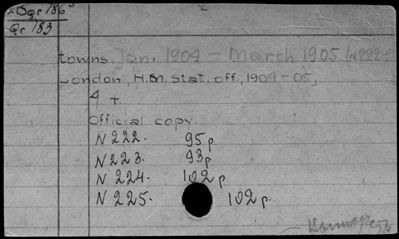 Qr 183
towns. Jan. 1904 - March 1905 (N222-
London, H.M. Stat. off., 1904-05,
4 т.
Official copy.
N 222. 95p
N 223. 93p
N 224. 102p
N 225. 102p.